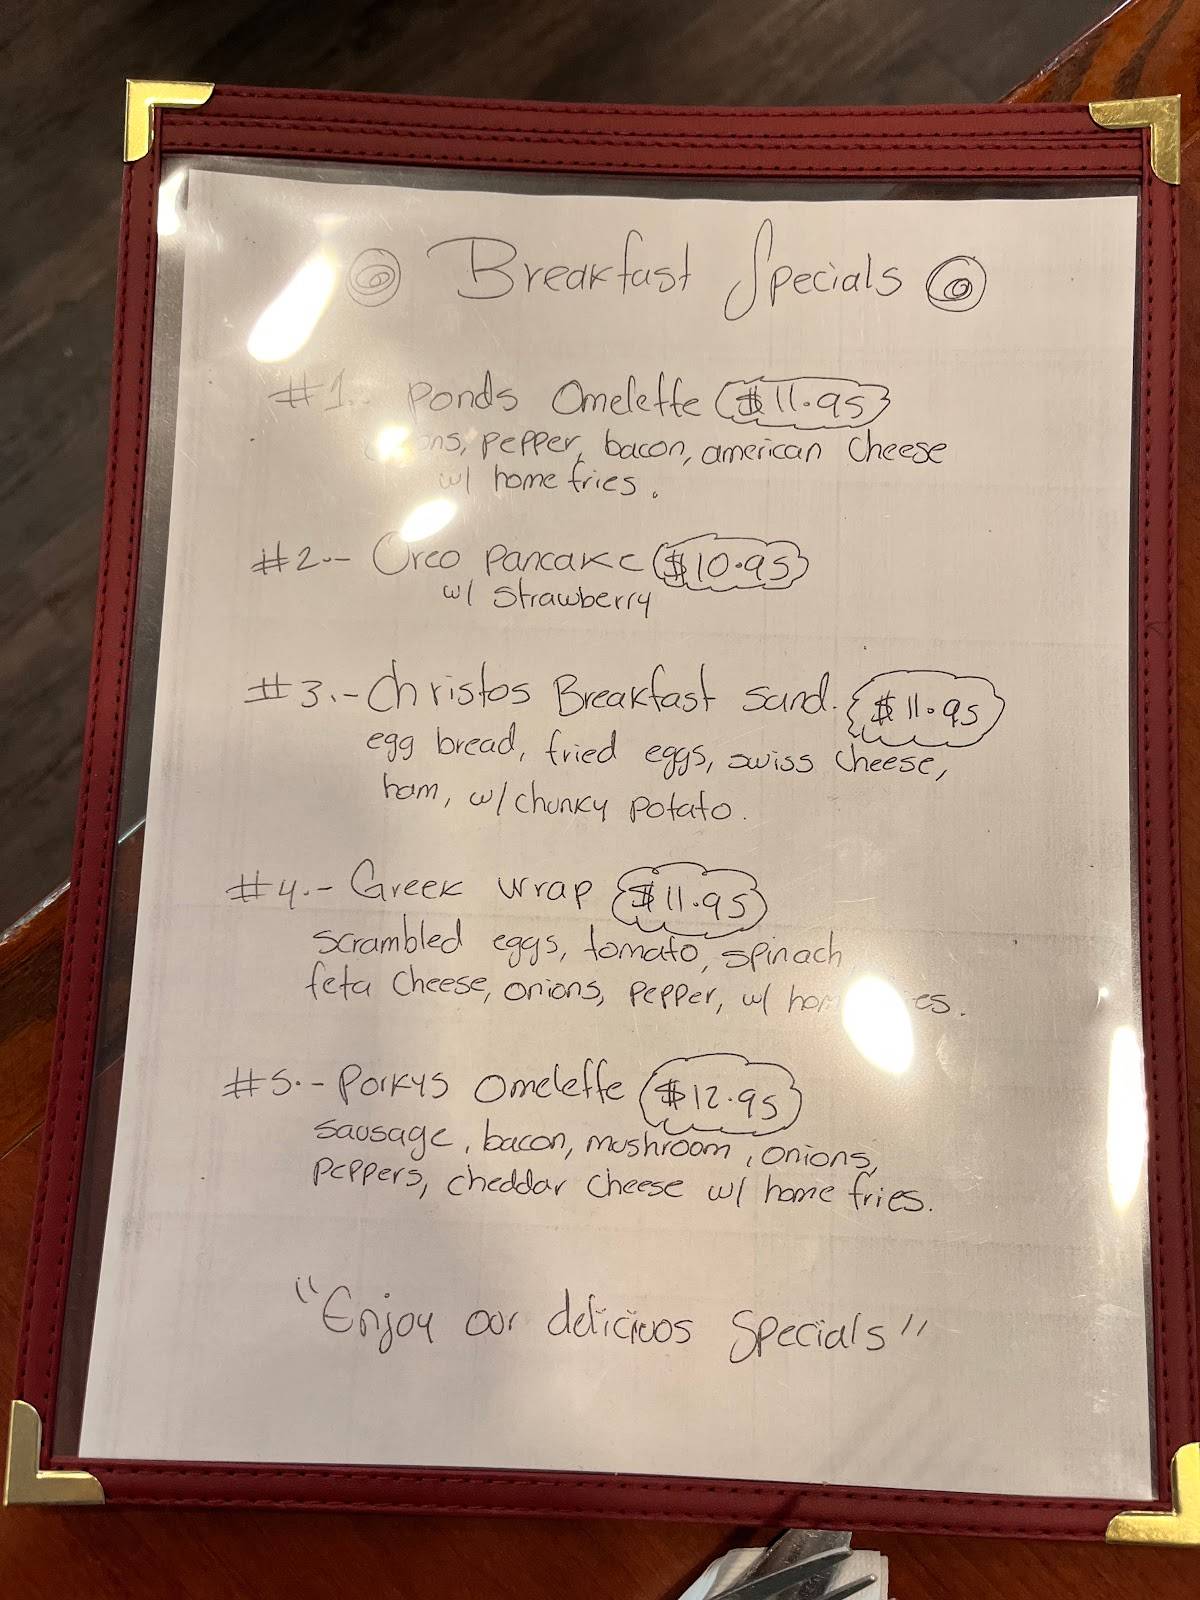 Breakfast Specials
#1.- Ponds Omelette $11.95
pepper, bacon, american cheese
w/ home fries.
#2.- Oreo pancake $10.95
w/ strawberry
#3.- Christos Breakfast sand. $11.95
egg bread, fried eggs, swiss cheese,
ham, w/ chunky potato.
#4.- Greek wrap $11.95
scrambled eggs, tomato, spinach
feta cheese, onions, pepper, w/
#5.- Porkys Omelette $12.95
sausage, bacon, mushroom, onions,
peppers, cheddar cheese w/ home fries.
"Enjoy our delicivos Specials"